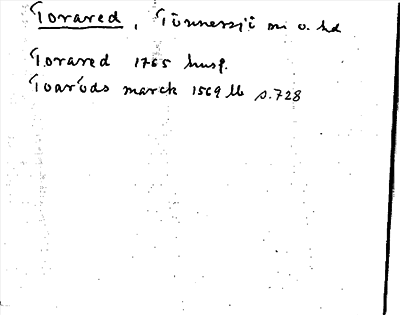 Torared, Tönnersjö sn o. hd
Torared 1765 husf.
Toaröds marck 1569 Jb s.728